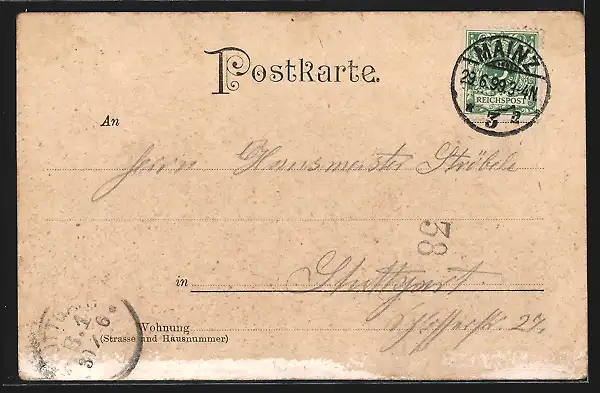 Postkarte.
MAINZ
29.6.99.3-4N.
REICHSPOST
3
An
Herrn Hausmeister Ströbele
38
in Stuttgart
Wohnung
(Strasse und Hausnummer)
27.